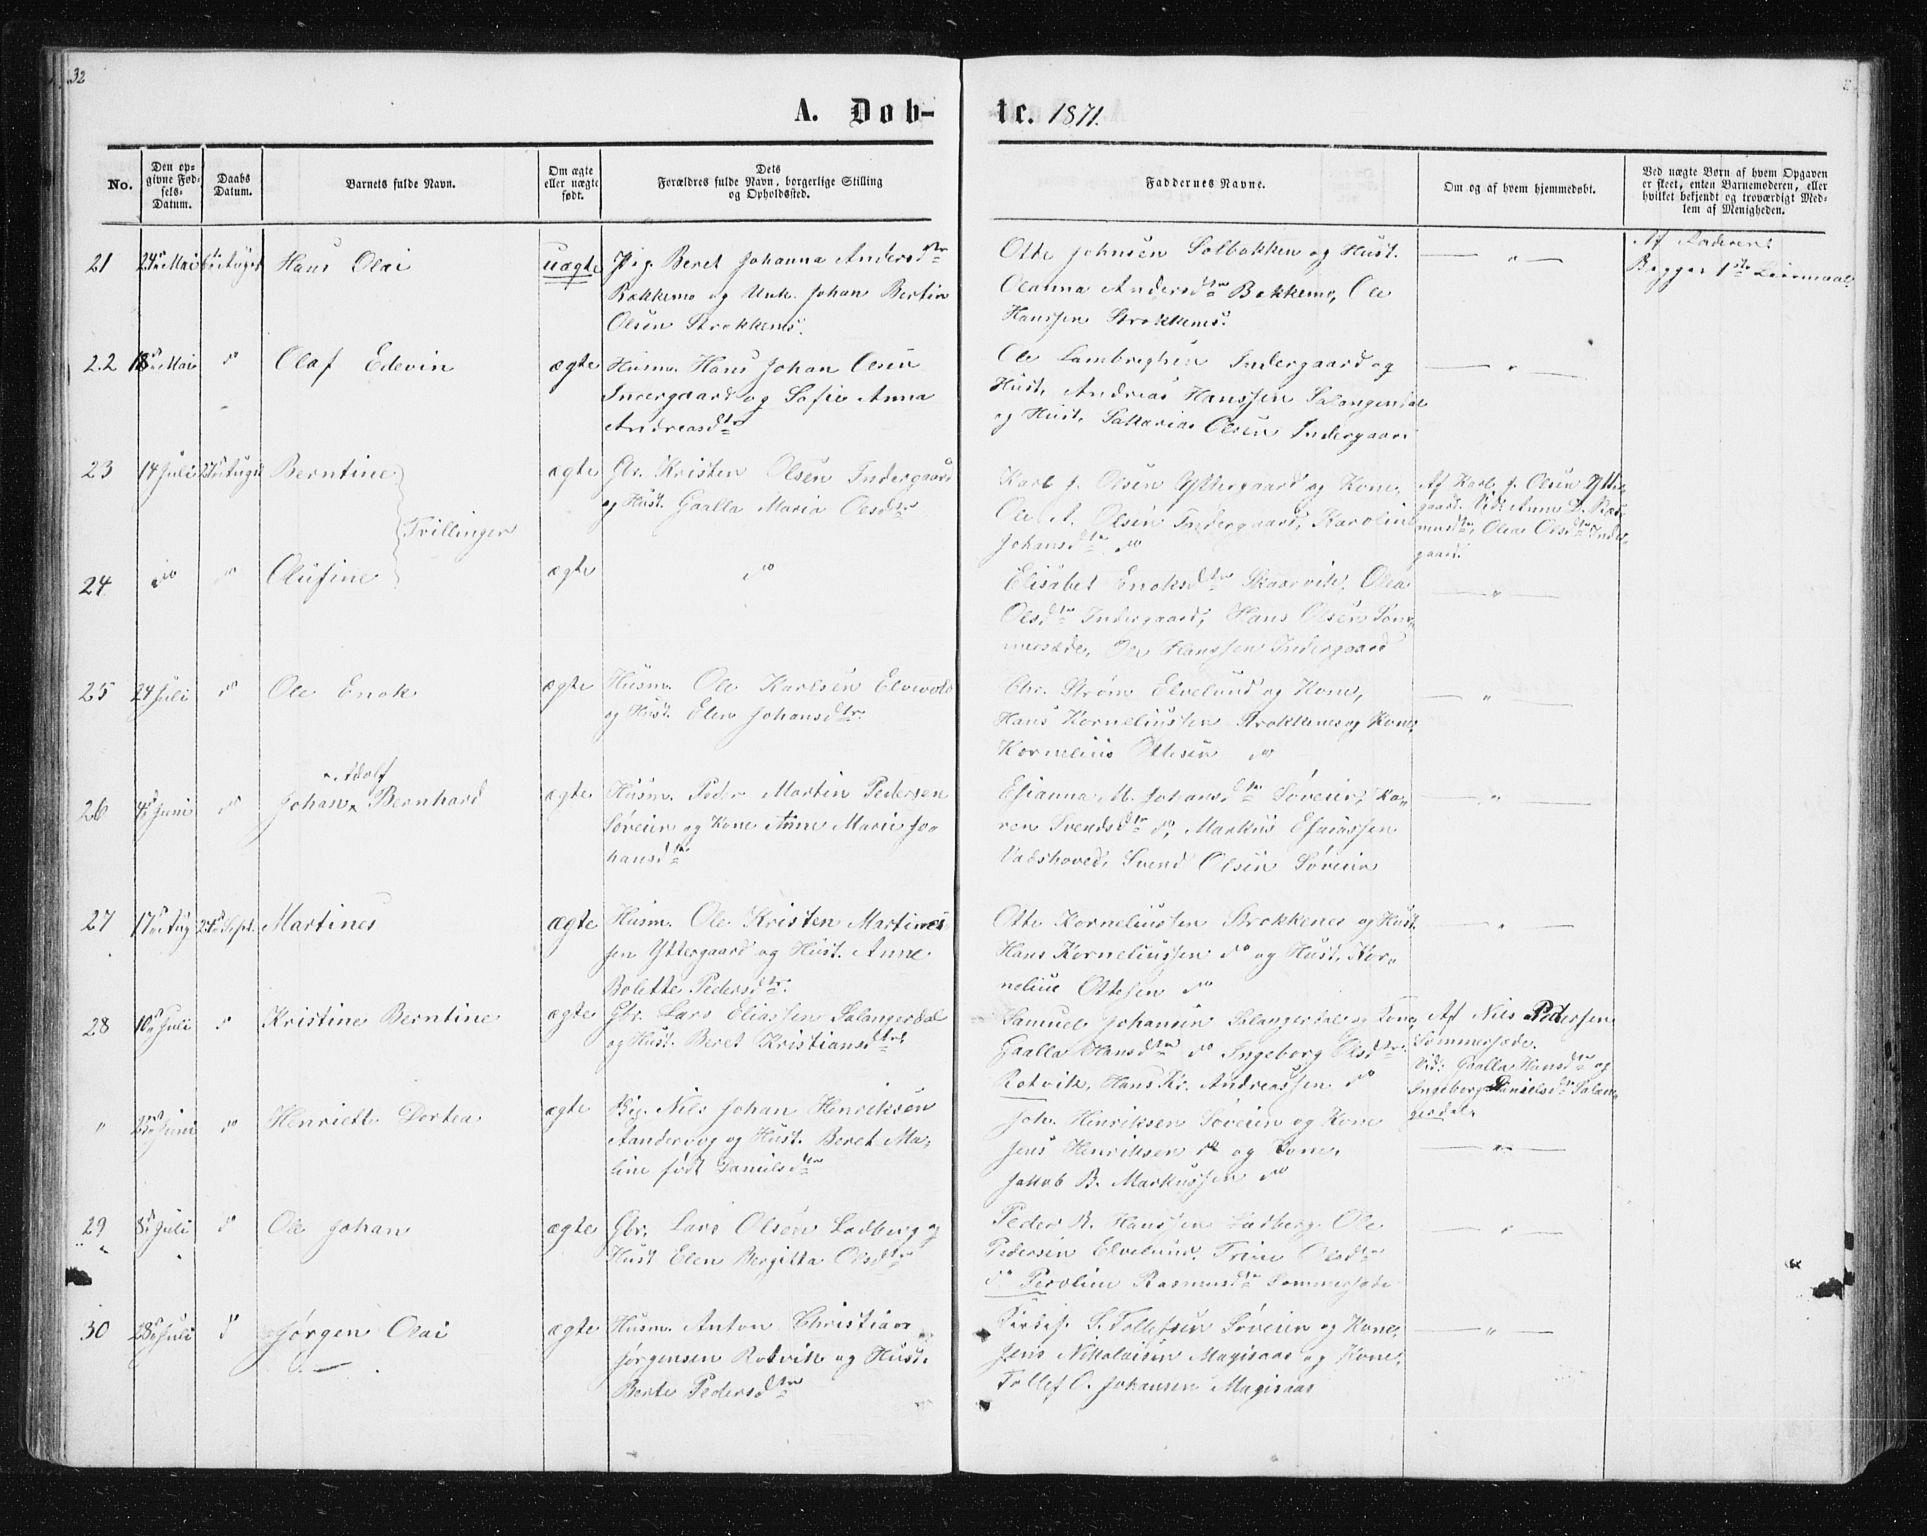 32
A. Døb-
te. 1871.
No.
Den op-
givne Fød-
sels-
Datum.
Daabs
Datum.
Barnets fulde Navn.
Om ægte
eller uægte
født.
Dets
Forældres fulde Navn, borgerlige Stilling
og Opholdssted.
Faddernes Navne.
Om og af hvem hjemmedøbt.
Ved uægte Børn af hvem Opgaven
er skeet, enten Barnemoderen, eller
hvilket bekjendt og troværdigt Med-
lem af Menigheden.
21 24de Mai 6te August Hans Olai uægte Pig. Beret Johanna Andersdtr
Bakkemo og Unk. Johan Bertin
Olsen Strokkenes.
Otte Johnsen Solbakken og Hust.
Olanna Andersdtr Bakkemo, Ole
Hanssen Strokkenes.
— " —
Af Faderen.
Begges 1ste Leiermaal.
22 18de Mai do Olaf Edevin ægte Husm. Hans Johan Olsen
Indergaard og Sofie Anna
Andreasdtr
Ole Lambreghtsen Indergaard og
Hust. Andreas Hanssen Salangerdal
og Hust. Sakarias Olsen Indergaard
— " —
23 14 Juli August Berntine ægte Gbr. Kristen Olsen Indergaard
og Hust. Gaalla Maria Olsdtr
Tvillinger
Karl J. Olsen Yttergaard og Kone,
Ole A. Olsen Indergaard, Karoline
Johansdtr do
Af Karl J. Olsen Ytter-
gaard. Vid: Anne B. Ras-
musdtr, Olea Olsdtr Inder-
gaard.
24 do do Olufine ægte do
Elisabet Enoksdtr Skaarvik, Olea
Olsdtr Indergaard, Hans Olsen Som-
mersæde, Ole Hanssen Indergaard
— " —
25 24 Juli do Ole Enok ægte Husm. Ole Karlsen Elvevold
og Hust. Elen Johansdtr.
Chr. Strøm Elvelund og Kone,
Hans Korneliussen Strokkenes og Kone,
Kornelius Ottesen do
— " —
26 4de Juni do Johan Adolf Bernhard ægte Husm. Peder Martin Pedersen
Søveien og Kone Anne Marie Jo-
hansdtr
Esianna M. Johansdtr Søveien, Ka-
ren Svendsdtr do, Markus Esaiassen
Vadshoved, Svend Olsen Søveien
— " —
27 17de Aug 24de Sept. Martines ægte Husm. Ole Kristen Martines-
sen Yttergaard og Hust. Anne
Bolette Pedersdtr.
Otte Korneliussen Strokkenes og Hust.
Hans Korneliussen do og Hust. Kor-
nelius Ottesen do
— " —
28 10de Juli do Kristine Berntine ægte Gbr. Lars Eliassen Salangerdal
og Hust. Beret Kristiansdtr
Samuel Johansen Salangerdal og Kone,
Gaalla Hansdtr do Ingeborg Olsdtr
Rotvik, Hans Kr. Andreassen do
Af Nils Pedersen
Sommersæde.
Vid: Gaalla Hansdtr og
Ingeborg Danielsdtr Salan-
gerdal.
" 25de Juni do Henriette Dortea ægte Big. Nils Johan Henriksen
Aandervog og Hust. Beret Ma-
line født Danielsdtr
Joh. Henriksen Søveien og Kone
Jens Henriksen do og Kone,
Jakob B. Markussen do
— " —
29 8de Juli do Ole Johan ægte Gbr. Lars Olsen Lodberg og
Hust Elen Bergitta Olsdtr
Peder R. Hanssen Lodberg Ole
Pedersen Elvelund. Trine Olsdtr
do Peroline Rasmusdtr Sommersæde
— " —
30 28de Juli do Jørgen Olai ægte Husm. Anton Christian
Jørgensen Rotvik og Hust.
Berte Pedersdtr
S. Tollefsen Søveien og Kone,
Jens Nikolaisen Magisaas og Kone,
Tollef O. Johansen Magisaas
— " —